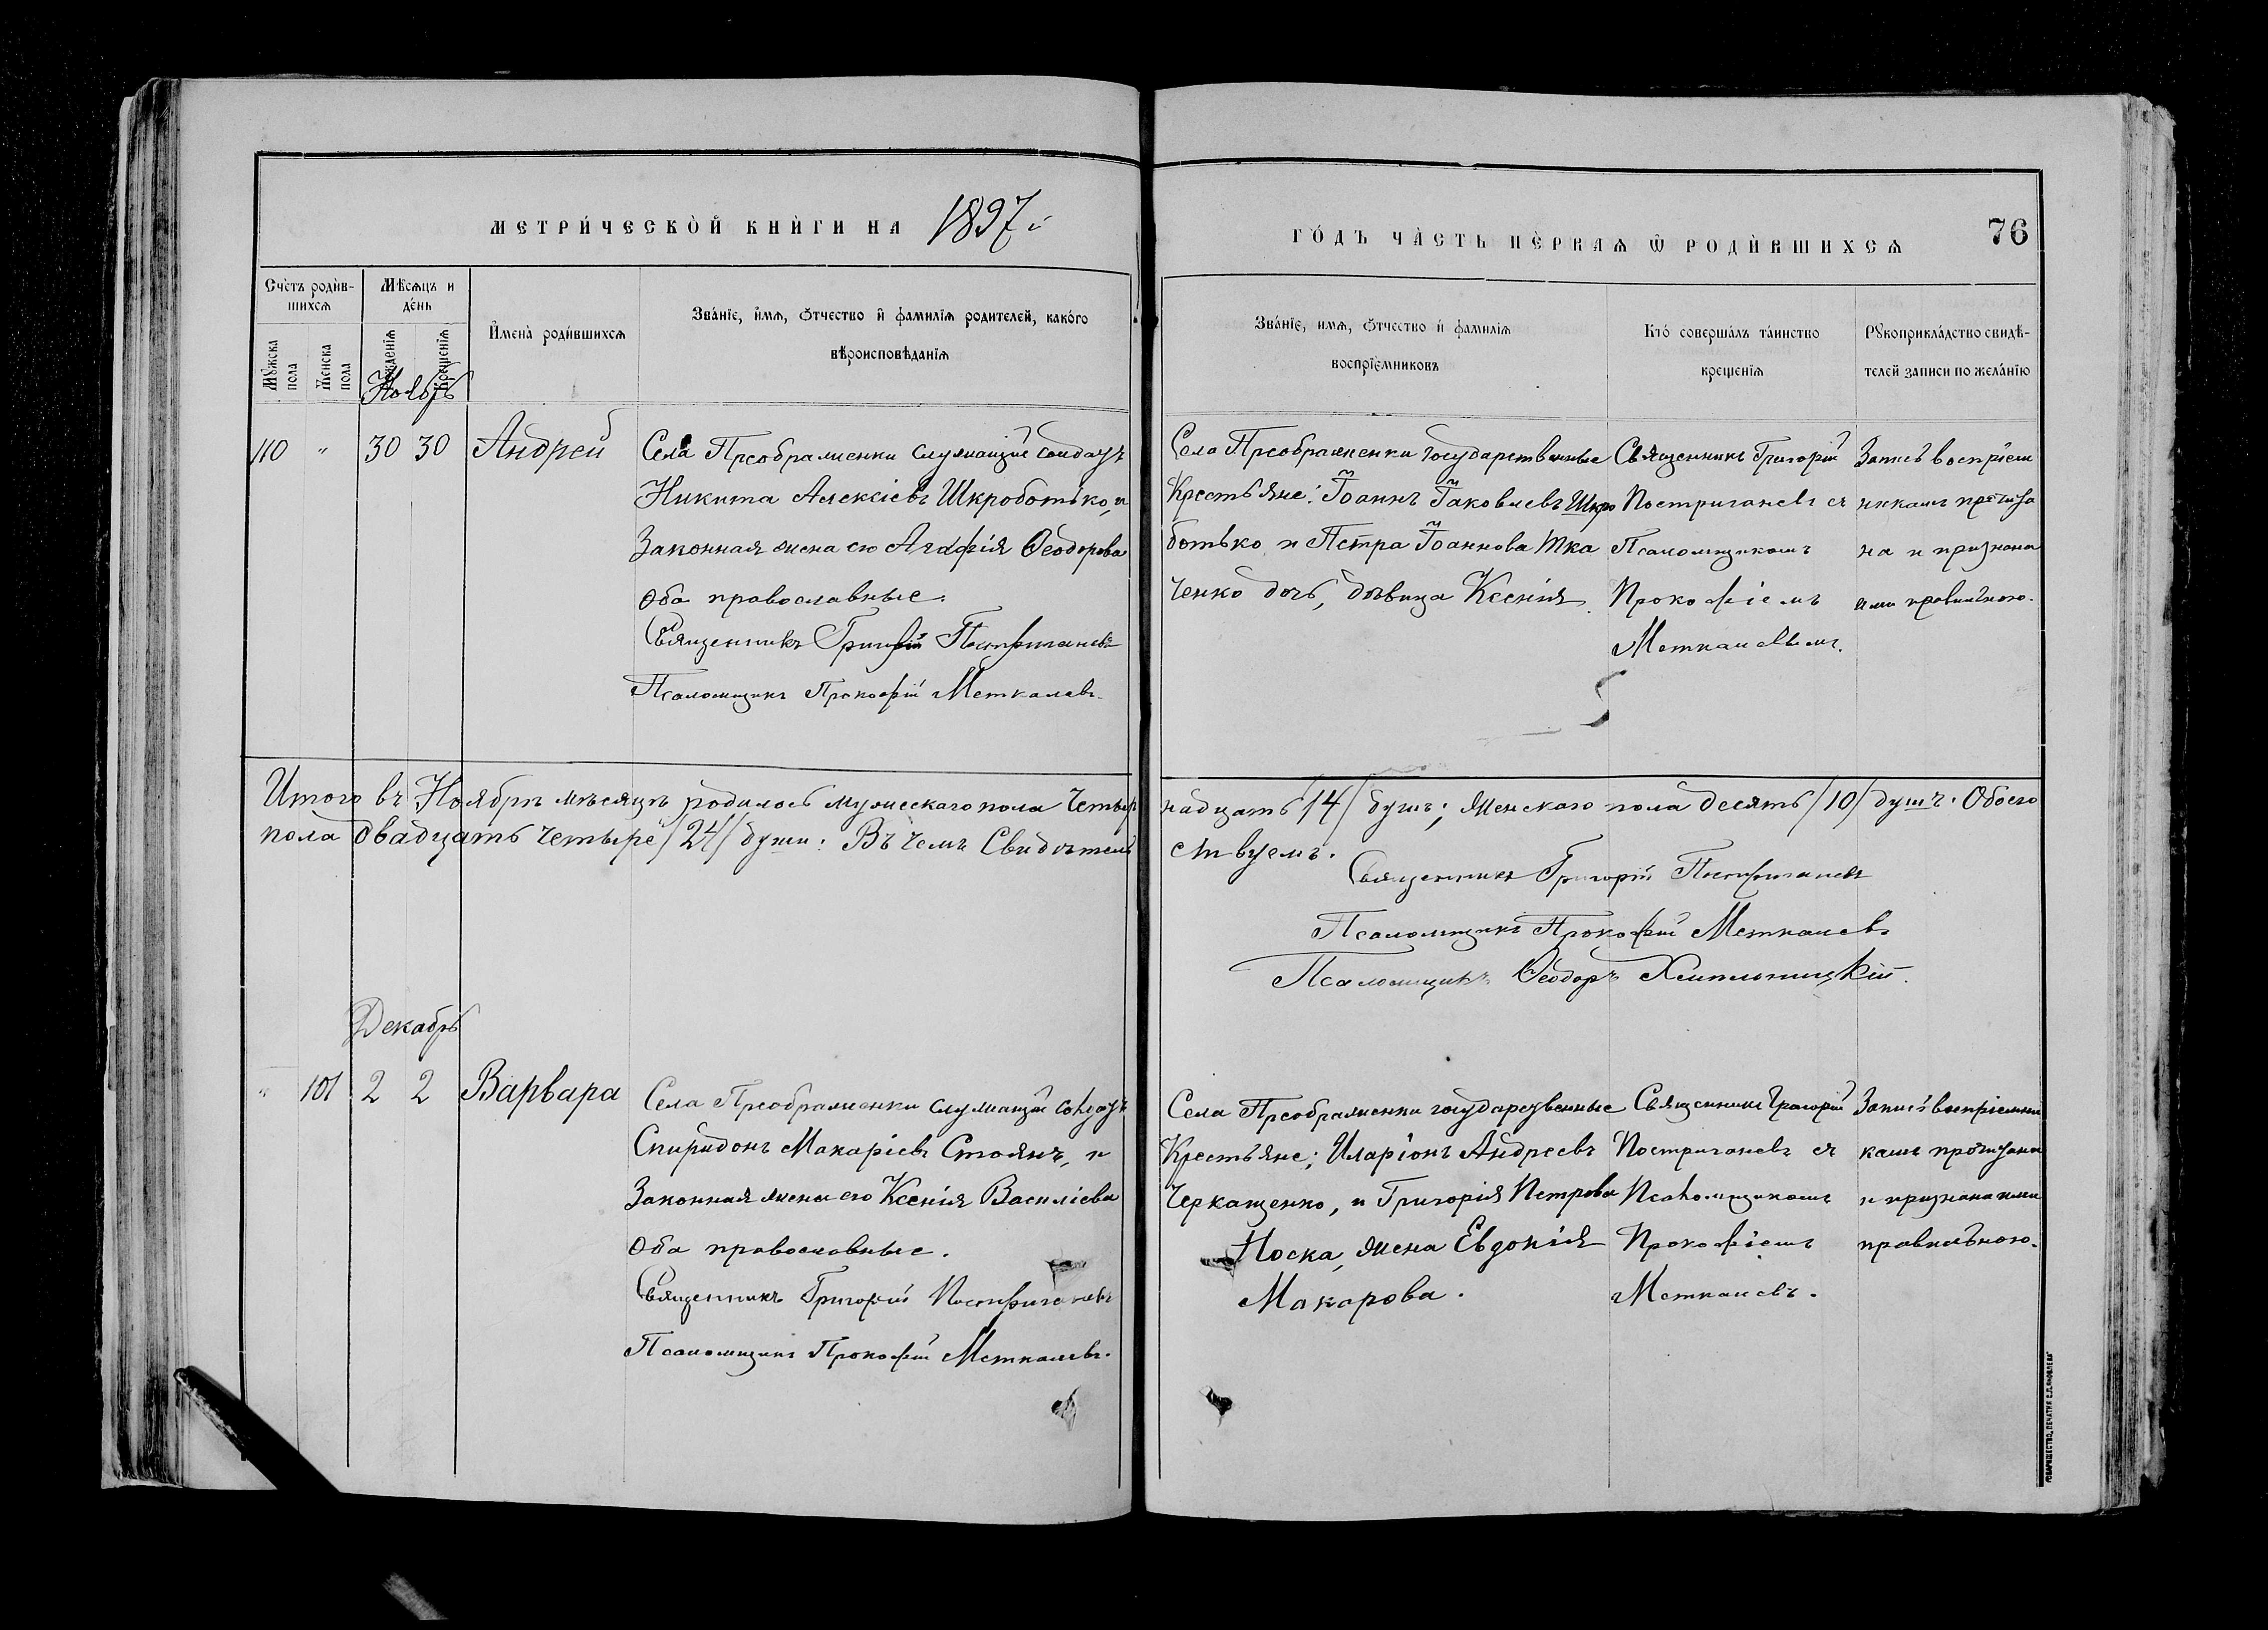 МЕТРИ́ЧЕСКОЙ КНИ́ГИ НА 1897й
ГО́ДЪ ЧА́СТЬ ПЕ́РВАѦ Ѿ РОДИ́ВШИХСѦ 76
Сче́тъ роди́в-
шихсѧ
Мѣ́сѧцъ и
де́нь
Мꙋ́жска
пола
Же́нска
пола
Рожде́нїѧ
Креще́нїѧ
И҆мена̀ роди́вшихсѧ
Зва́нїе, и҆́мѧ, ѻ҆́тчество и҆ фами́лїѧ роди́телей, како́го
вѣроисповѣ́данїѧ
Зва́нїе, и҆мѧ, ѻ҆́тчество и҆ фами́лїѧ
воспрїе́мниковъ
Кто̀ соверша́лъ та́инство
креще́нїѧ
Рꙋкоприкла́дство свидѣ́-
телей записи по жела́нїю
Ноябрь
110 " 30 30 Андрей
Села Преображенки служащій солдатъ
Никита Алексіевъ Шкроботько, и
Законная жена его Агафія Ѳеодорова
оба православные.
Священникъ Григорій Постригачевъ
Псаломщикъ Прокофій Меткалевъ.
Села Преображенки государственные
Крестьяне: Іоаннъ Іаковлевъ Шкро
ботько и Петра Іоаннова Тка
ченко дочь, дѣвица Ксенія.
Священникъ Григорій
Постригачевъ съ
Псаломщикомъ
Прокофіемъ
Меткалевымъ.
Запись воспріем
никамъ прочита
на и признана
ими правильною.
Итого въ Ноябрѣ мѣсяцѣ родилось мужескаго пола четыр
надцать /14/ душъ; женскаго пола десять /10/ душъ. Обоего
пола двадцать четыре /24/ души: Въ чемъ Свидѣтель
ствуемъ.
Священникъ Григорій Постригачевъ
Псаломщикъ Прокофій Меткалевъ
Псаломщикъ Ѳеодоръ
Декабрь
" 101 2 2 Варвара
Села Преображенки служащій солдатъ
Спиридонъ Макаріевъ Стоянъ, и
Законная жена его Ксенія Василіева
оба православные.
Священникъ Григорій Постригачевъ
Псаломщикъ Прокофій Меткалевъ.
Села Преображенки государственные
Крестьяне; Иларіонъ Андреевъ
Черкащенко, и Григорія Петрова
Носка, жена Евдокія
Макарова.
Священникъ Григорій
Постригачевъ съ
Псаломщикомъ
Прокофіемъ
Меткалевъ.
Запись воспріемни
камъ прочитана
и признана ими
правильною.